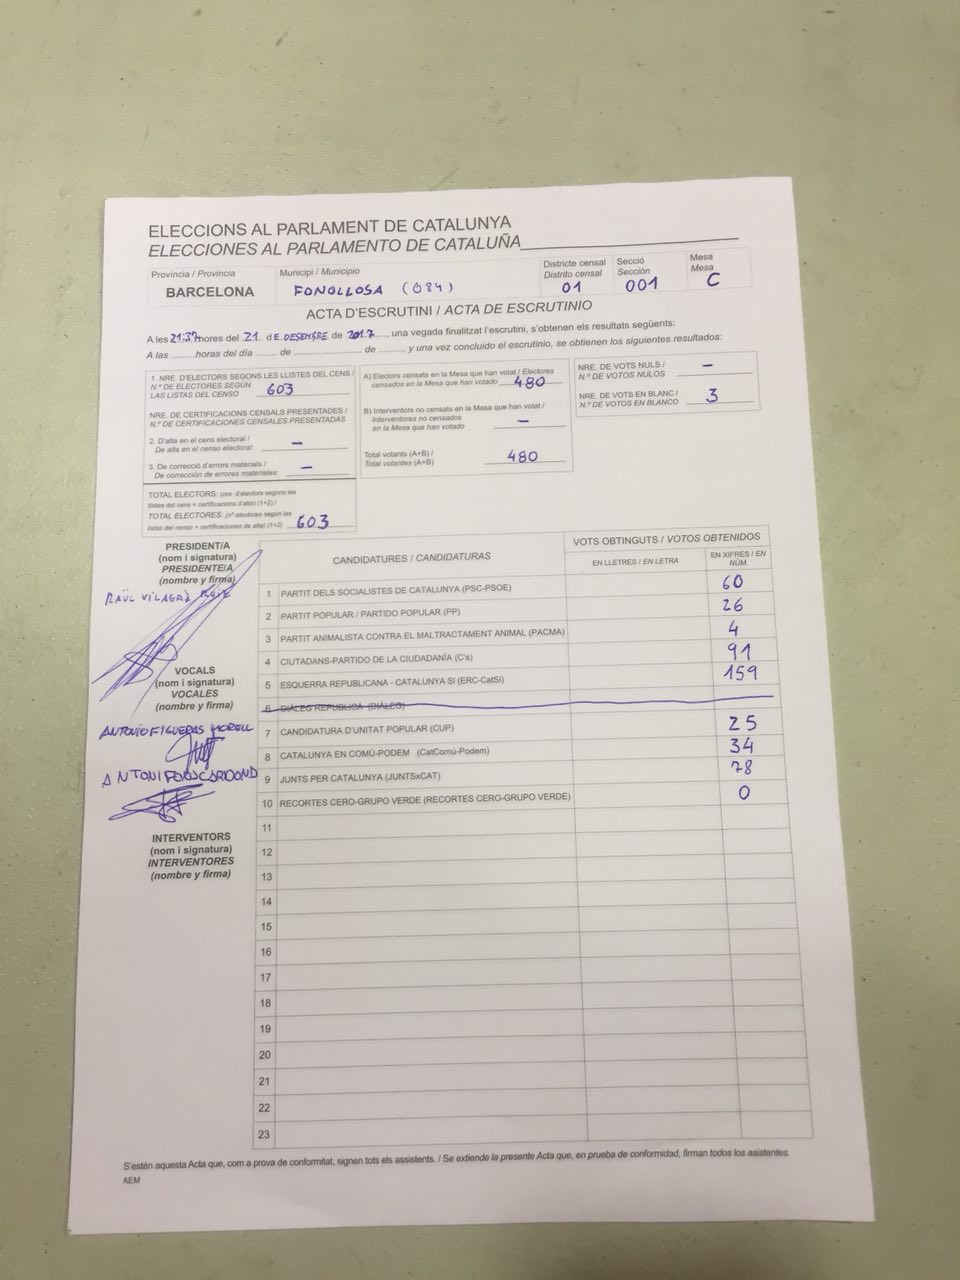 ELECCIONS AL PARLAMENT DE CATALUNYA
ELECCIONES AL PARLAMENTO DE CATALUÑA
Província / Provincia
BARCELONA
Municipi / Municipio
FONOLLOSA (084)
Districte censal
Distrito censal
01
Secció
Sección
001
Mesa
Mesa
C
ACTA D'ESCRUTINI / ACTA DE ESCRUTINIO
A les 21:37 hores del 21 de DESEMBRE de 2017, una vegada finalitzat l'escrutini, s'obtenen els resultats següents:
A las ........horas del día ....... de ....................... de ........, y una vez concluido el escrutinio, se obtienen los siguientes resultados:
1. NRE. D'ELECTORS SEGONS LES LLISTES DEL CENS /
N.º DE ELECTORES SEGÚN
LAS LISTAS DEL CENSO 603
NRE. DE CERTIFICACIONS CENSALS PRESENTADES /
N.º DE CERTIFICACIONES CENSALES PRESENTADAS
2. D'alta en el cens electoral /
De alta en el censo electoral: –
3. De correcció d'errors materials /
De corrección de errores materiales: –
TOTAL ELECTORS: (nre. d'electors segons les
llistes del cens + certificacions d'alta) (1+2) /
TOTAL ELECTORES: (nº electores según las
listas del censo + certificaciones de alta) (1+2) 603
A) Electors censats en la Mesa que han votat / Electores
censados en la Mesa que han votado 480
B) Interventors no censats en la Mesa que han votat /
Interventores no censados
en la Mesa que han votado –
Total votants (A+B) /
Total votantes (A+B) 480
NRE. DE VOTS NULS /
N.º DE VOTOS NULOS –
NRE. DE VOTS EN BLANC /
N.º DE VOTOS EN BLANCO 3
PRESIDENT/A
(nom i signatura)
PRESIDENTE/A
(nombre y firma)
RAÜL VILAGRÀ RUIZ
VOCALS
(nom i signatura)
VOCALES
(nombre y firma)
ANTONI FIGUERAS MORELL
ANTONI
INTERVENTORS
(nom i signatura)
INTERVENTORES
(nombre y firma)
CANDIDATURES / CANDIDATURAS
VOTS OBTINGUTS / VOTOS OBTENIDOS
EN LLETRES / EN LETRA
EN XIFRES / EN
NÚM.
1 PARTIT DELS SOCIALISTES DE CATALUNYA (PSC-PSOE) 60
2 PARTIT POPULAR / PARTIDO POPULAR (PP) 26
3 PARTIT ANIMALISTA CONTRA EL MALTRACTAMENT ANIMAL (PACMA) 4
4 CIUTADANS-PARTIDO DE LA CIUDADANÍA (C's) 91
5 ESQUERRA REPUBLICANA - CATALUNYA SÍ (ERC-CatSí) 159
6 DIÀLEG REPUBLICÀ (DIÀLEG)
7 CANDIDATURA D'UNITAT POPULAR (CUP) 25
8 CATALUNYA EN COMÚ-PODEM (CatComú-Podem) 34
9 JUNTS PER CATALUNYA (JUNTSxCAT) 78
10 RECORTES CERO-GRUPO VERDE (RECORTES CERO-GRUPO VERDE) 0
11
12
13
14
15
16
17
18
19
20
21
22
23
S'estén aquesta Acta que, com a prova de conformitat, signen tots els assistents. / Se extiende la presente Acta que, en prueba de conformidad, firman todos los asistentes.
AEM